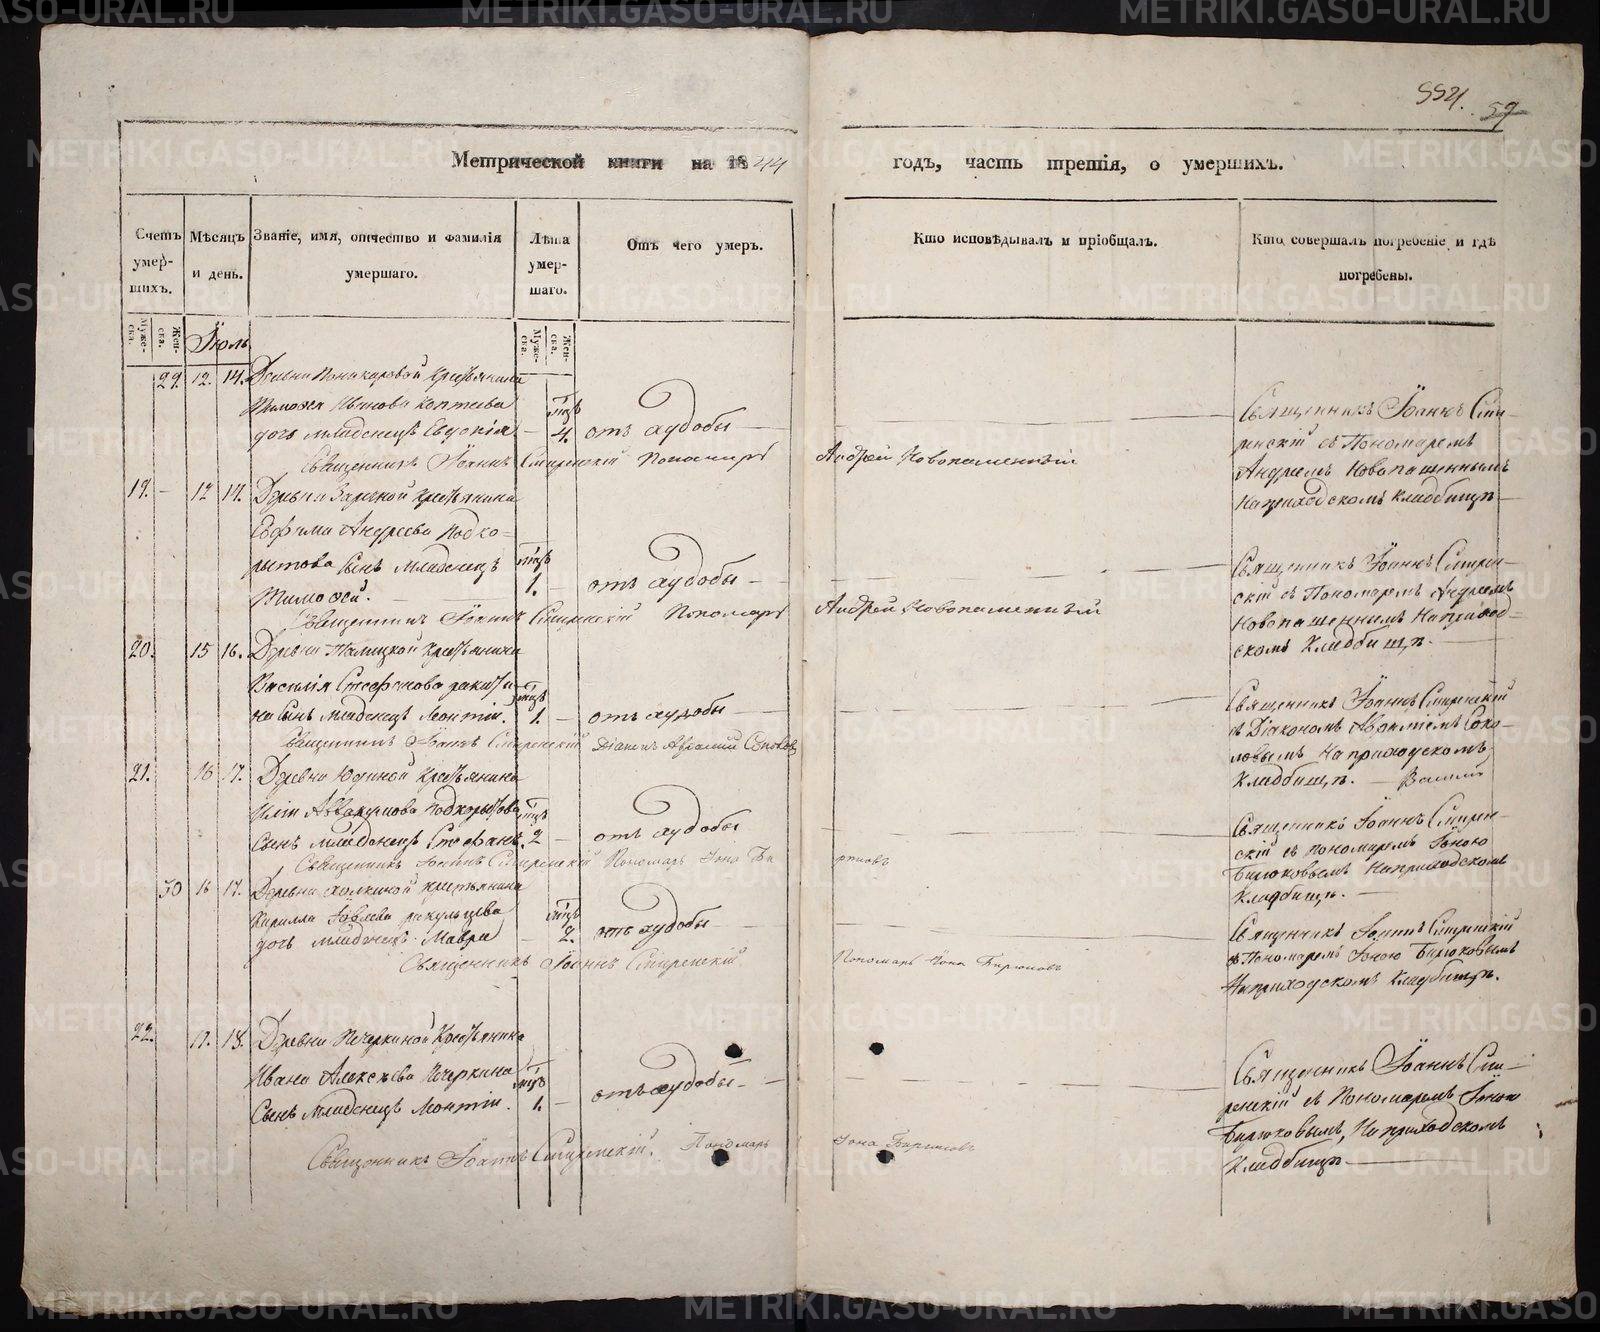 554. 59
Метрической книги на 1844 годъ, часть третія, о умершихъ.
Счетъ умер-шихъ.
Мѣсяцъ и день.
Званіе, имя, отчество и фамилія умершаго.
Лѣта умер-шаго.
Отъ чего умеръ.
Кто исповѣдывалъ и пріобщалъ.
Кто совершалъ погребеніе и гдѣ погребены.
Муже-ска.
Жен-ска.
Іюль
Муже-ска.
Жен-ска.
29. 12. 14. Деревни крестьянина
Тимофея Иванова Коптева
дочь младенецъ Евдокія 4. отъ худобы
Священникъ Іоаннъ Смиренскій Пономарь Андрей Новопашенный
Священникъ Іоаннъ Сми-
ренскій съ Пономаремъ
Андреемъ Новопашеннымъ
На приходскомъ кладбищѣ
19. 12 14. Деревни Заречной крестьянина
Ефима Андреева Подко-
рытова сынъ младенецъ
Тимофей. 1. отъ худобы
Священникъ Іоаннъ Смиренскій Пономарь Андрей Новопашенный
Священникъ Іоаннъ Смирен-
скій съ Пономаремъ Андреемъ
Новопашеннымъ На приход-
скомъ кладбищѣ.
20. 15 16. Деревни Талицкой крестьянина
Василія Стефанова
на сынъ младенецъ Леонтій. 1. отъ худобы
Священникъ Іоаннъ Смиренскій Діаконъ Авраамій Соколовъ
Священникъ Іоаннъ Смиренскій
съ Діакономъ Авраміемъ Соко-
ловымъ На приходскомъ
кладбищѣ.
21. 16 17. Деревни Юдиной крестьянина
Иліи Аввакумова Подкорытова
сынъ младенецъ Стефанъ. 2 отъ худобы
Священникъ Іоаннъ Смиренскій Пономарь Іона Бирюковъ
Священникъ Іоаннъ Смирен-
скій съ пономаремъ Іоною
Бирюковымъ На приходскомъ
кладбищѣ.
30 16 17. Деревни крестьянина
Кирилла Іовлева
дочь младенецъ Мавра 2. отъ худобы
Священникъ Іоаннъ Смиренскій Пономарь Іона Бирюковъ
Священникъ Іоаннъ Смиренскій
съ Пономаремъ Іоною Бирюковымъ
На приходскомъ кладбищѣ.
22. 17. 18. Деревни Печеркиной Крестьянина
Ивана Алексѣева Печеркина
сынъ младенецъ Леонтій. 1. отъ худобы
Священникъ Іоаннъ Смиренскій. Пономарь Іона Бирюковъ
Священникъ Іоаннъ Сми-
ренскій съ Пономаремъ Іоною
Бирюковымъ, На приходскомъ
кладбищѣ
METRIKI.GASO-URAL.RU